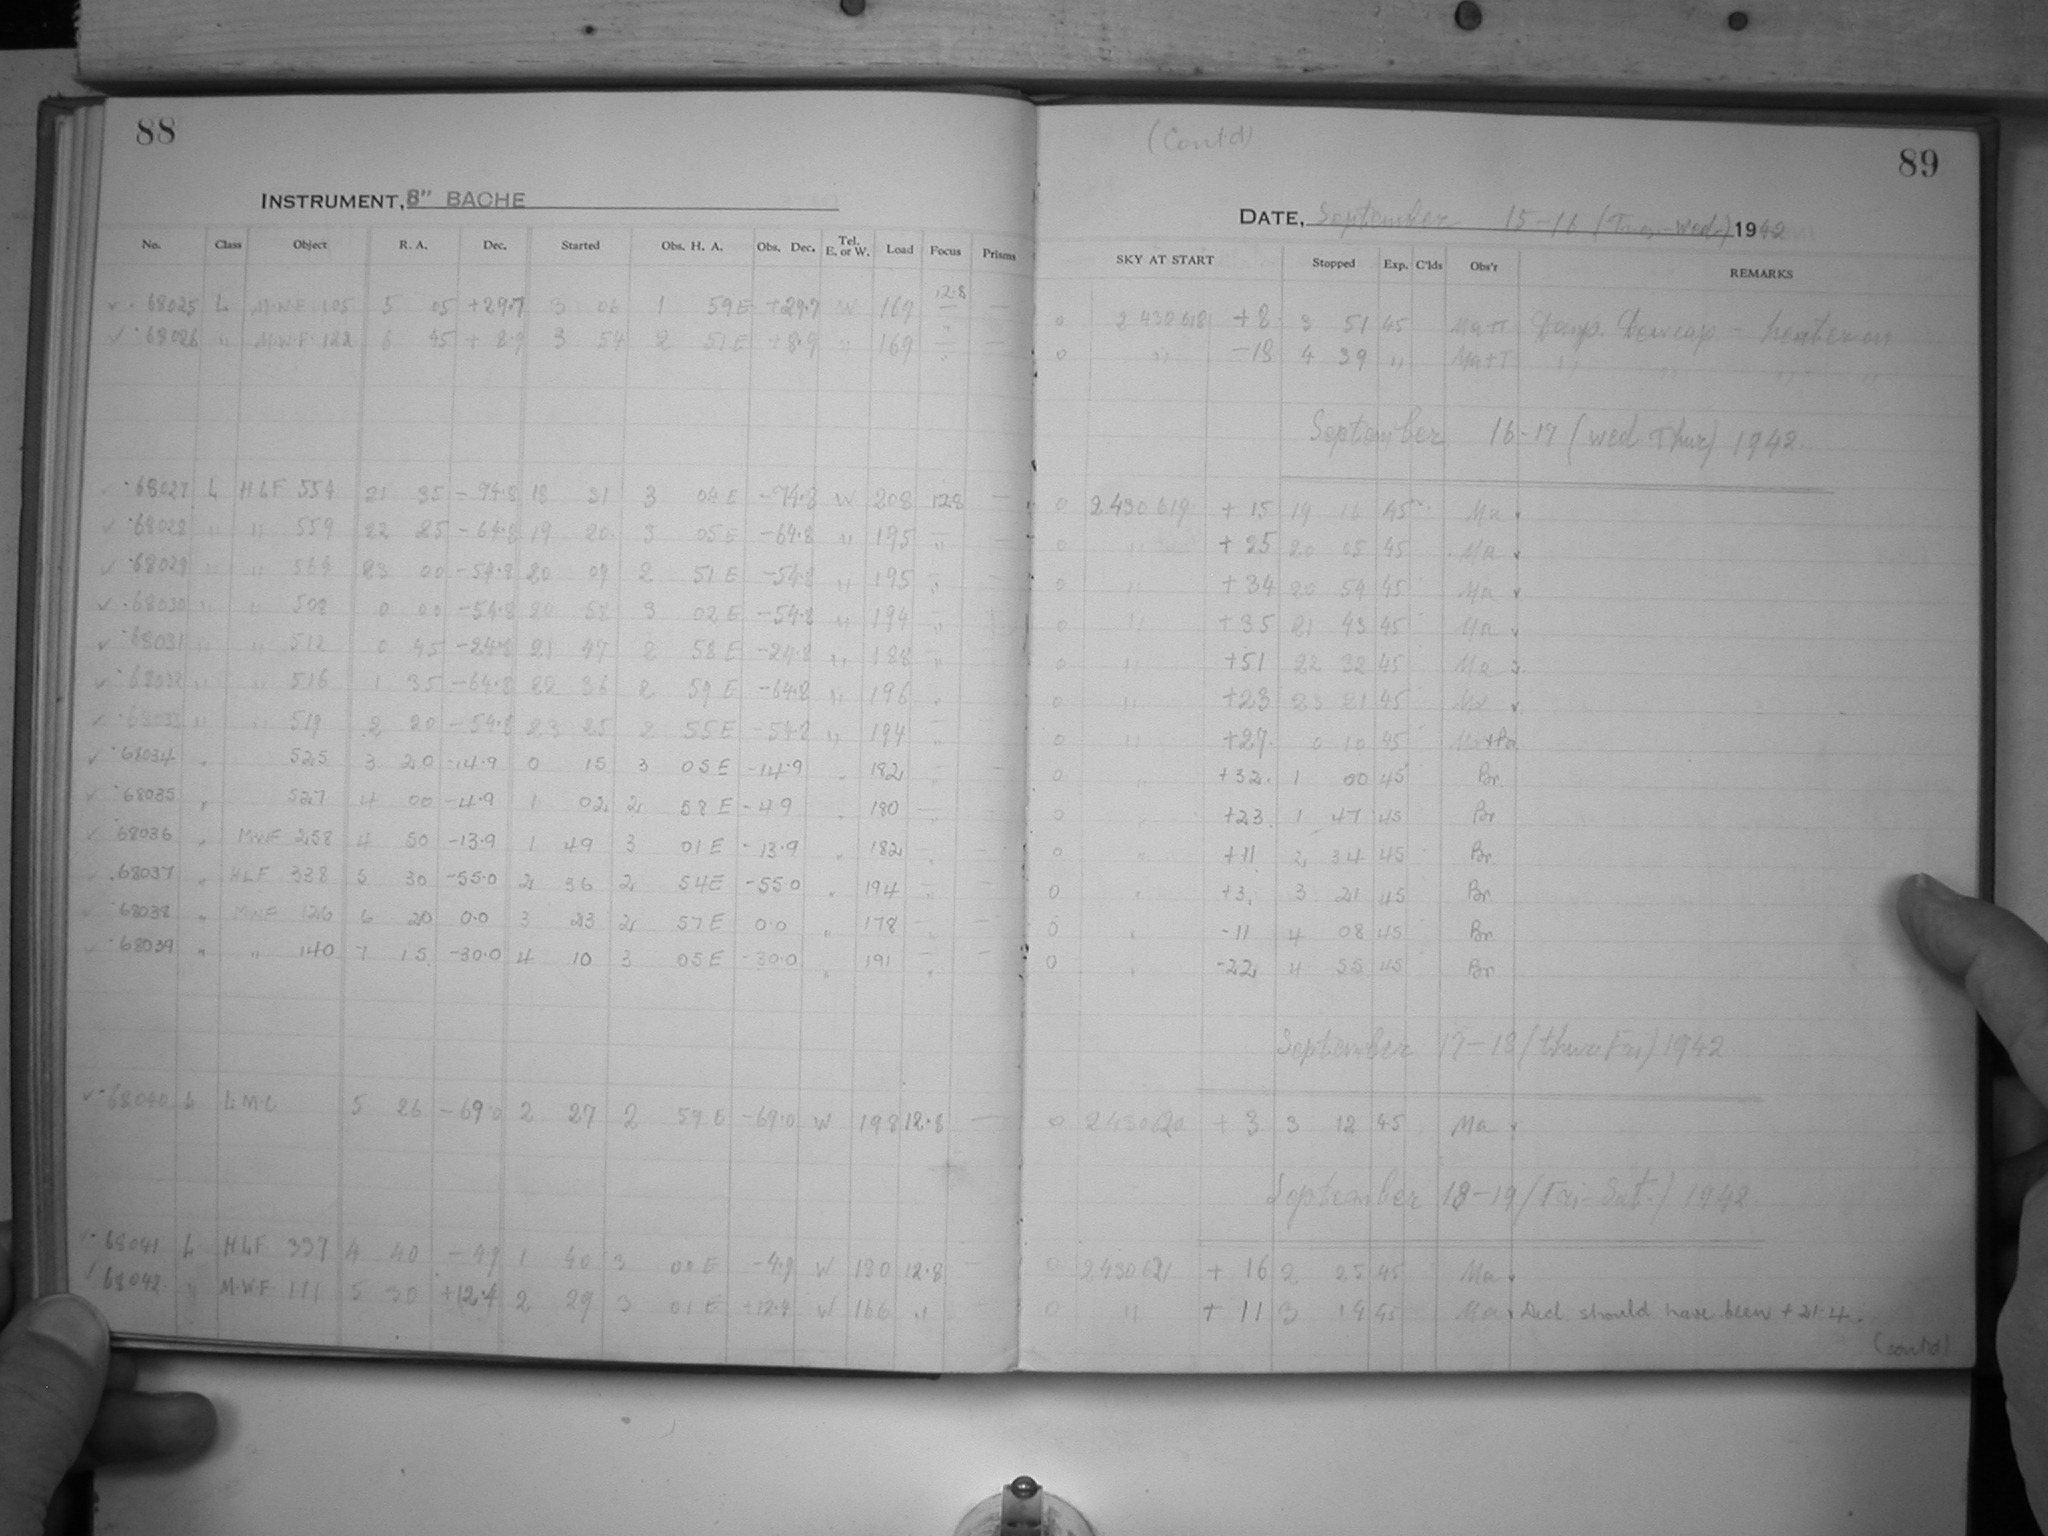 88
INSTRUMENT, 8" BACHE
No. Class Object R. A. Dec. Started Obs. H. A. Obs. Dec. Tel. E. or W. Load Focus Prisms
68025 L M.W.F 105 5 05 +29.7 3 06 1 59 E +29.7 W 167 12.8 —
68026 " M.W.F. 122 6 45 + 8.9 3 54 2 51 E +8.9 " 169 " —
68027 L HLF 554 21 35 -74.8 18 31 3 04 E -74.8 W 208 12.8 —
68028 " " 559 22 25 -64.8 19 20 3 05 E -64.8 " 195 " —
68029 " " 564 23 00 -54.8 20 09 2 51 E -54.8 " 195 "
68030 " " 508 0 00 -54.8 20 58 3 02 E -54.8 " 194 "
68031 " " 512 0 45 -24.8 21 47 2 58 E -24.8 " 188 "
68032 " " 516 1 35 -64.8 22 36 2 59 E -64.8 " 196 "
68033 " " 519 2 20 -54.8 23 25 2 55 E -54.8 " 194 "
68034 " 525 3 20 -14.9 0 15 3 05 E -14.9 " 182 " —
68035 " 527 4 00 -4.9 1 02 2 58 E -4.9 " 180 " —
68036 " MWF 258 4 50 -13.9 1 49 3 01 E -13.9 " 182 " —
68037 " HLF 338 5 30 -55.0 2 36 2 54 E -55.0 " 194 " —
68038 " MWF 126 6 20 0.0 3 23 2 57 E 0.0 " 178 " —
68039 " " 140 7 15 -30.0 4 10 3 05 E -30.0 " 191 " —
68040 L L.M.C 5 26 -69.0 2 27 2 59 E -69.0 W 198 12.8 —
68041 L HLF 337 4 40 -4.9 1 40 3 00 E -4.9 W 180 12.8 —
68042 " M.W.F 111 5 30 +12.4 2 29 3 01 E +12.4 W 166 "
(Contd)
89
DATE, September 15-16 (Tues-Wed) 1942
SKY AT START Stopped Exp. C'lds Obs'r REMARKS
0 2430618 +8 3 51 45 Ma+T Damp. Dewcap - heater on
0 " -18 4 39 " Ma+T " " " "
September 16-17 (Wed Thur) 1942.
0 2430619 + 15 19 16 45 Ma
0 " + 25 20 05 45 Ma
0 " + 34 20 54 45 Ma
0 " +35 21 43 45 Ma
0 " +51 22 32 45 Ma
0 " +23 23 21 45 Ma
0 " +27 0 10 45 Ma+Br
0 " +32 1 00 45 Br
0 " +23 1 47 45 Br
0 " +11 2 34 45 Br
0 " +3 3 21 45 Br
0 " -11 4 08 45 Br
0 " -22 4 55 45 Br
September 17-18 (Thur Fri) 1942
0 2430620 + 3 3 12 45 Ma
September 18-19 (Fri-Sat.) 1942
0 2430621 + 16 2 25 45 Ma
0 " + 11 3 14 45 Ma Decl should have been +21.4.
(contd)